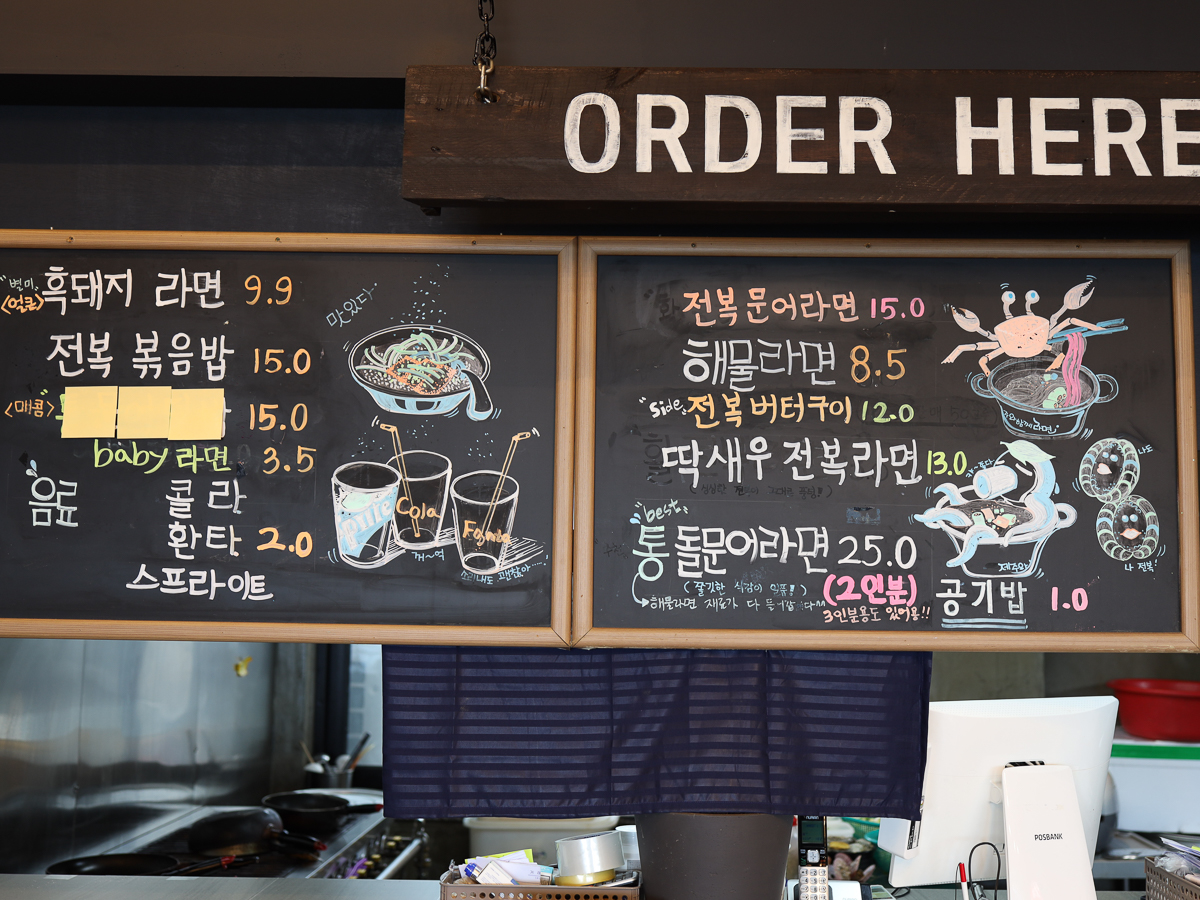 ORDER HERE
"별미"
<얼큰> 흑돼지 라면 9.9
전복 볶음밥 15.0
<매콤> 15.0
baby 라면 3.5
음료 콜라
환타 2.0
스프라이트
맛있다
Cola
꺼~억
전복 문어라면 15.0
해물라면 8.5
"side" 전복버터구이 12.0
딱새우 전복라면 13.0
"best"
통 돌문어라면 25.0
(쫄깃한 식감이 일품!) (2인분)
해물라면 재료가 다 들어갑니다^^
3인분용도 있어용!!
공기밥 1.0
나도
나 전복!
POSBANK